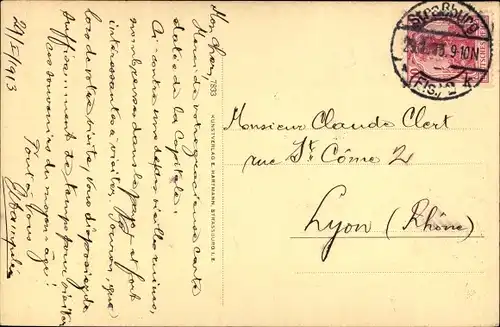 29/XI/1913
Mon cher,
Merci de votre gracieuse carte
datée de la Capitale.
Ci-contre une des plus vieilles ruines,
nombreuses dans le pays, et fort
intéressantes à visiter. que
lors de votre visite, vous disposiez de
suffisamment de temps pour visiter
ces souvenirs du moyen-âge!
Tout à vous
7833
KUNSTVERLAG E. HARTMANN, STRASSBURG I.E.
Straßburg
9-10N
(Els.) 2 k
Monsieur Claude Clert
rue St. Côme 2
Lyon (Rhône)